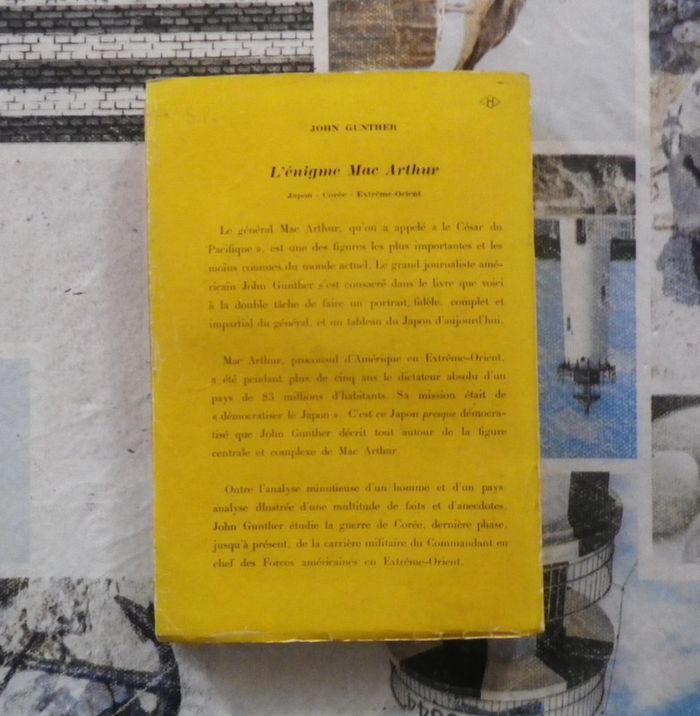 JOHN GUNTHER
L'énigme Mac Arthur
Japon - Corée - Extrême-Orient
Le général Mac Arthur, qu'on a appelé « le César du
Pacifique », est une des figures les plus importantes et les
moins connues du monde actuel. Le grand journaliste amé-
ricain John Gunther s'est consacré dans le livre que voici
à la double tâche de faire un portrait fidèle, complet et
impartial du général, et un tableau du Japon d'aujourd'hui.
Mac Arthur, proconsul d'Amérique en Extrême-Orient,
a été pendant plus de cinq ans le dictateur absolu d'un
pays de 83 millions d'habitants. Sa mission était de
« démocratiser le Japon ». C'est ce Japon presque démocra-
tisé que John Gunther décrit tout autour de la figure
centrale et complexe de Mac Arthur.
Outre l'analyse minutieuse d'un homme et d'un pays,
analyse illustrée d'une multitude de faits et d'anecdotes,
John Gunther étudie la guerre de Corée, dernière phase,
jusqu'à présent, de la carrière militaire du Commandant en
chef des Forces américaines en Extrême-Orient.